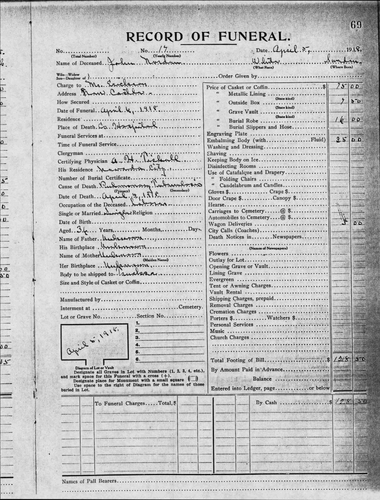 69
RECORD OF FUNERAL.
No. No. 17 Date, April 5, 1918.
(Total Number) (Yearly Number)
Name of Deceased John White
(What Race) (Where Born)
Charge to Mr Erickson Order Given by
Address
How Secured
Date of Funeral April 6, 1918.
Residence
Place of Death Co. Hospital
Funeral Services at
Time of Funeral Service
Clergyman
Certifying Physician
His Residence City.
Number of Burial Certificate
Cause of Death Pulmonary Tuberculosis
Date of Death April 3, 1918
Occupation of the Deceased
Single or Married Single Religion
Date of Birth
Aged 36 Years, Months, Days.
Name of Father Unknown
His Birthplace Unknown
Name of Mother Unknown
(Maiden Name)
Her Birthplace Unknown
Body to be shipped to
Size and Style of Casket or Coffin
Manufactured by
Interment at Cemetery.
Lot or Grave No. Section No.
1.
2.
3.
4.
5.
6.
April 6, 1918.
Diagram of Lot or Vault
Designate all Graves in Lot with Numbers (1, 2, 3, 4, etc.),
and mark space for this Funeral with a cross (+).
Designate place for Monument with a small square
Use space to the right of Diagram for the names of those
buried in Lot.
Price of Casket or Coffin 75 00
" Metallic Lining
" Outside Box
" Grave Vault
" Burial Robe
" Burial Slippers and Hose
Engraving Plate
Embalming Body (with Fluid) 25 00
Washing and Dressing
Shaving
Keeping Body on Ice
Use of Catafalque and Drapery
" Folding Chairs
" Candelabrum and Candles
Gloves $ Crape $
Door Crape $ Canopy $
Hearse
Carriages to Cemetery @$
Automobiles to Cemetery @$
Wagon Deliveries
City Calls (Coaches)
Death Notices in Newspapers
(Names of Newspapers)
Flowers
Outlay for Lot
Opening Grave or Vault
Lining Grave
Evergreen
Tent or Awning Charges
Vault Rental
Shipping Charges, prepaid
Removal Charges
Cremation Charges
Porters $ Watchers $
Personal Services
Music
Church Charges
Total Footing of Bill
By Amount Paid in Advance
Balance
Entered into Ledger, page or below
To Funeral Charges, Total By Cash
Names of Pall Bearers